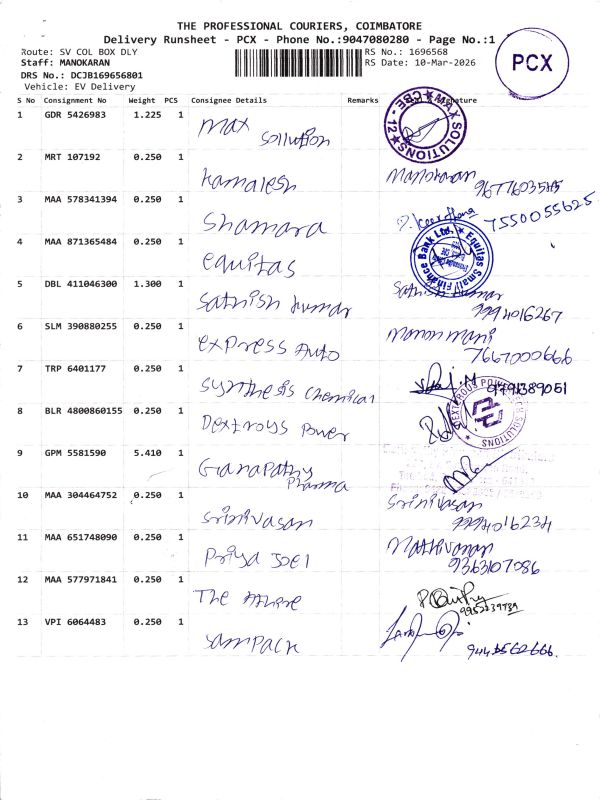 THE PROFESSIONAL COURIERS, COIMBATORE
Delivery Runsheet - PCX - Phone No.:9047080280 - Page No.:1
Route: SV COL BOX DLY
Staff: MANOKARAN
DRS No.: DCJB169656801
Vehicle: EV Delivery
RS No.: 1696568
RS Date: 10-Mar-2026
PCX
S No Consignment No Weight PCS Consignee Details Remarks Signature
1 GDR 5426983 1.225 1 max sollution
MAX SOLUTIONS CBE - 12
2 MRT 107192 0.250 1 kamalesh Manokaran
3 MAA 578341394 0.250 1 Shamara 7550055625
4 MAA 871365484 0.250 1 equitas
Equitas Small Finance Bank Ltd.
5 DBL 411046300 1.300 1 Sathish kumar Sathish kumar
9994016267
6 SLM 390880255 0.250 1 express Auto Manonmani
7667000666
7 TRP 6401177 0.250 1 synthesis chemical 9791389051
8 BLR 4800860155 0.250 1 Dextroys Power
DEXTROUS POWERTECH SOLUTIONS
9 GPM 5581590 5.410 1 Ganapathy Pharma
10 MAA 304464752 0.250 1 srinivasan Srinivasan
9994016234
11 MAA 651748090 0.250 1 Priya JOEl Mathivanan
9363107086
12 MAA 577971841 0.250 1 The
13 VPI 6064483 0.250 1 sampack